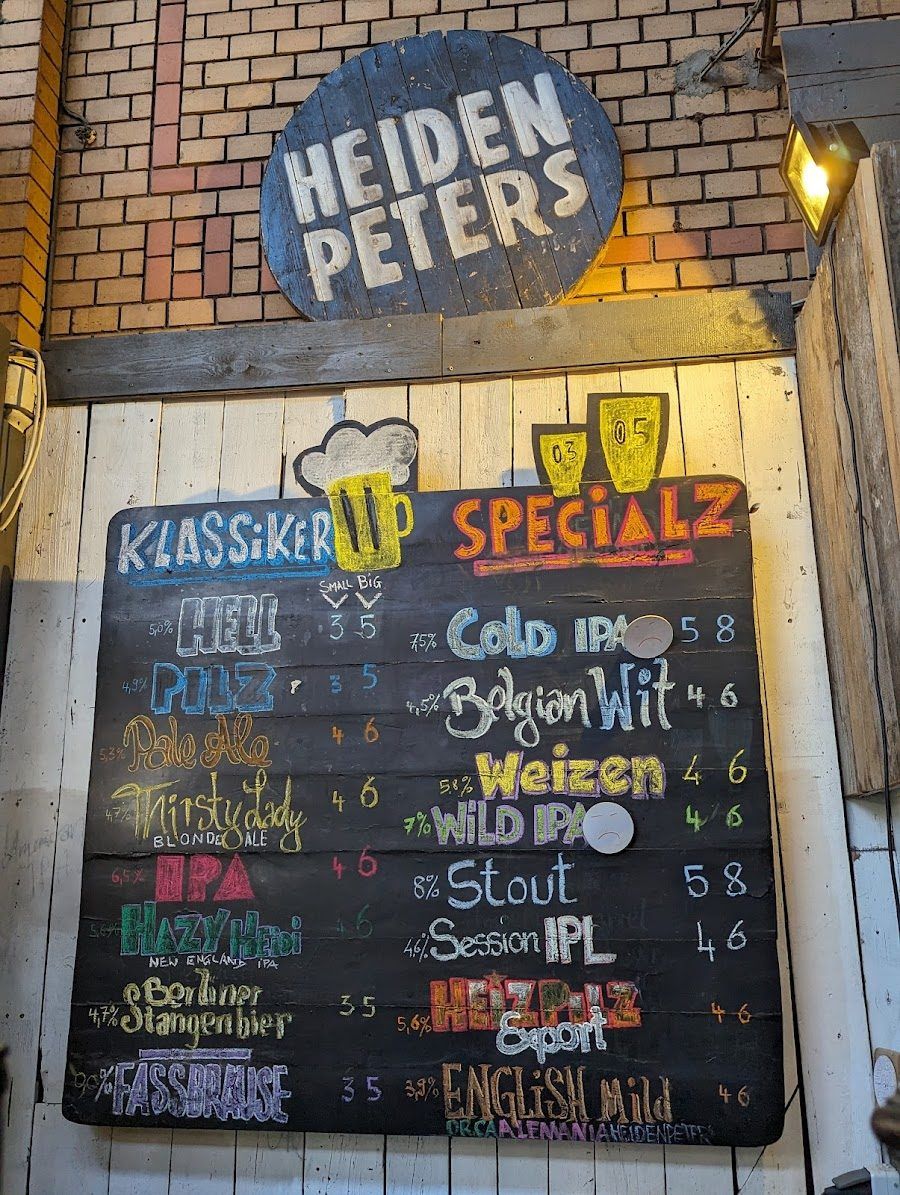 HEIDEN
PETERS
03 05
KLASSiKER
SMALL BIG
5,0% HELL 3 5
4,9% PILZ 3 5
5,3% Pale Ale 4 6
4,7% Thirsty Lady 4 6
BLONDE ALE
6,5% IPA 4 6
HAZY Heidi 4 6
NEW ENGLAND IPA
4,7% Berliner
Stangenbier 3 5
FASSBRAUSE 3 5
SPECiALZ
7,5% COLD IPA 5 8
4,5% Belgian Wit 4 6
5,8% Weizen 4 6
7% WiLD IPA 4 6
8% Stout 5 8
4,6% Session IPL 4 6
5,6% HEIZPILZ 4 6
Export
3,9% ENGLiSH Mild 4 6
ORCA ALEMANIA HEIDENPETERS